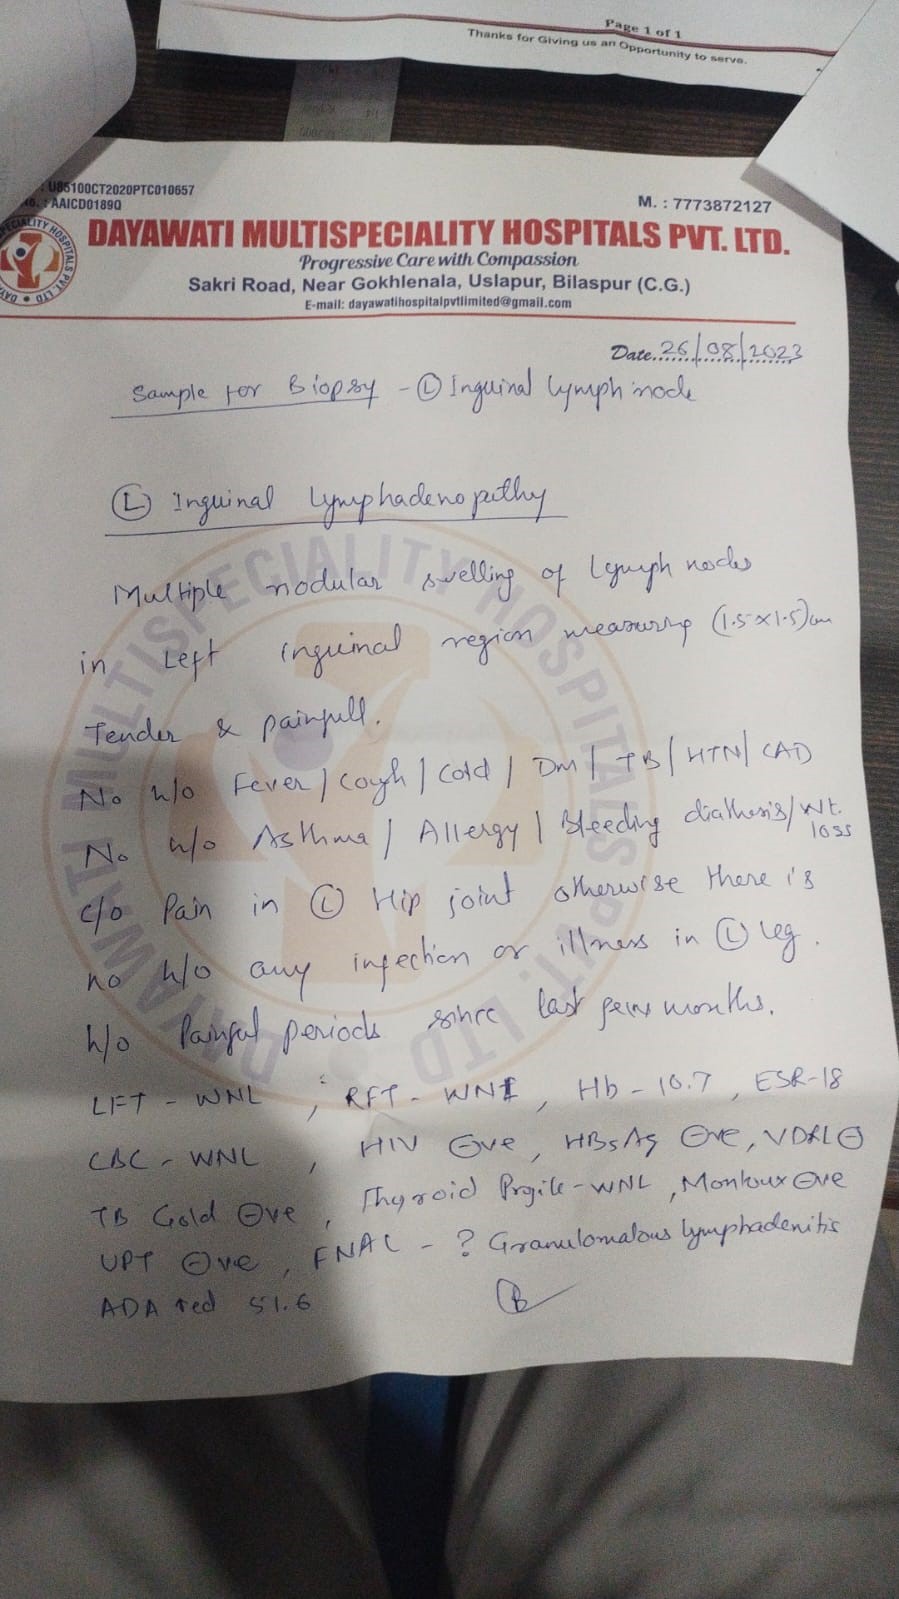 Page 1 of 1
Thanks for Giving us an Opportunity to serve.
: U85100CT2020PTC010657
No. : AAICD0189Q
M. : 7773872127
DAYAWATI MULTISPECIALITY HOSPITALS PVT. LTD.
Progressive Care with Compassion
Sakri Road, Near Gokhlenala, Uslapur, Bilaspur (C.G.)
E-mail: dayawatihospitalpvtlimited@gmail.com
Date. 26/08/2023
Sample for Biopsy - Ⓛ Inguinal lymph node
Ⓛ Inguinal Lymphadenopathy
Multiple nodular swelling of lymph nodes
in Left inguinal region measuring (1.5x1.5)cm
Tender & painfull.
No h/o Fever/Cough/Cold/DM/TB/HTN/CAD
No h/o Asthma/Allergy/Bleeding diathesis/Wt. loss
c/o Pain in Ⓛ Hip joint otherwise there is
no h/o any infection or illness in Ⓛ leg.
h/o Painful periods since last few months.
LFT - WNL, RFT - WNL, Hb - 10.7, ESR-18
CBC - WNL, HIV ⊖ve, HBsAg ⊖ve, VDRL ⊖
TB Gold ⊖ve, Thyroid Profile-WNL, Montoux ⊖ve
UPT ⊖ve, FNAC - ? Granulomatous lymphadenitis
ADA 51.6
DAYAWATI MULTISPECIALITY HOSPITALS PVT. LTD